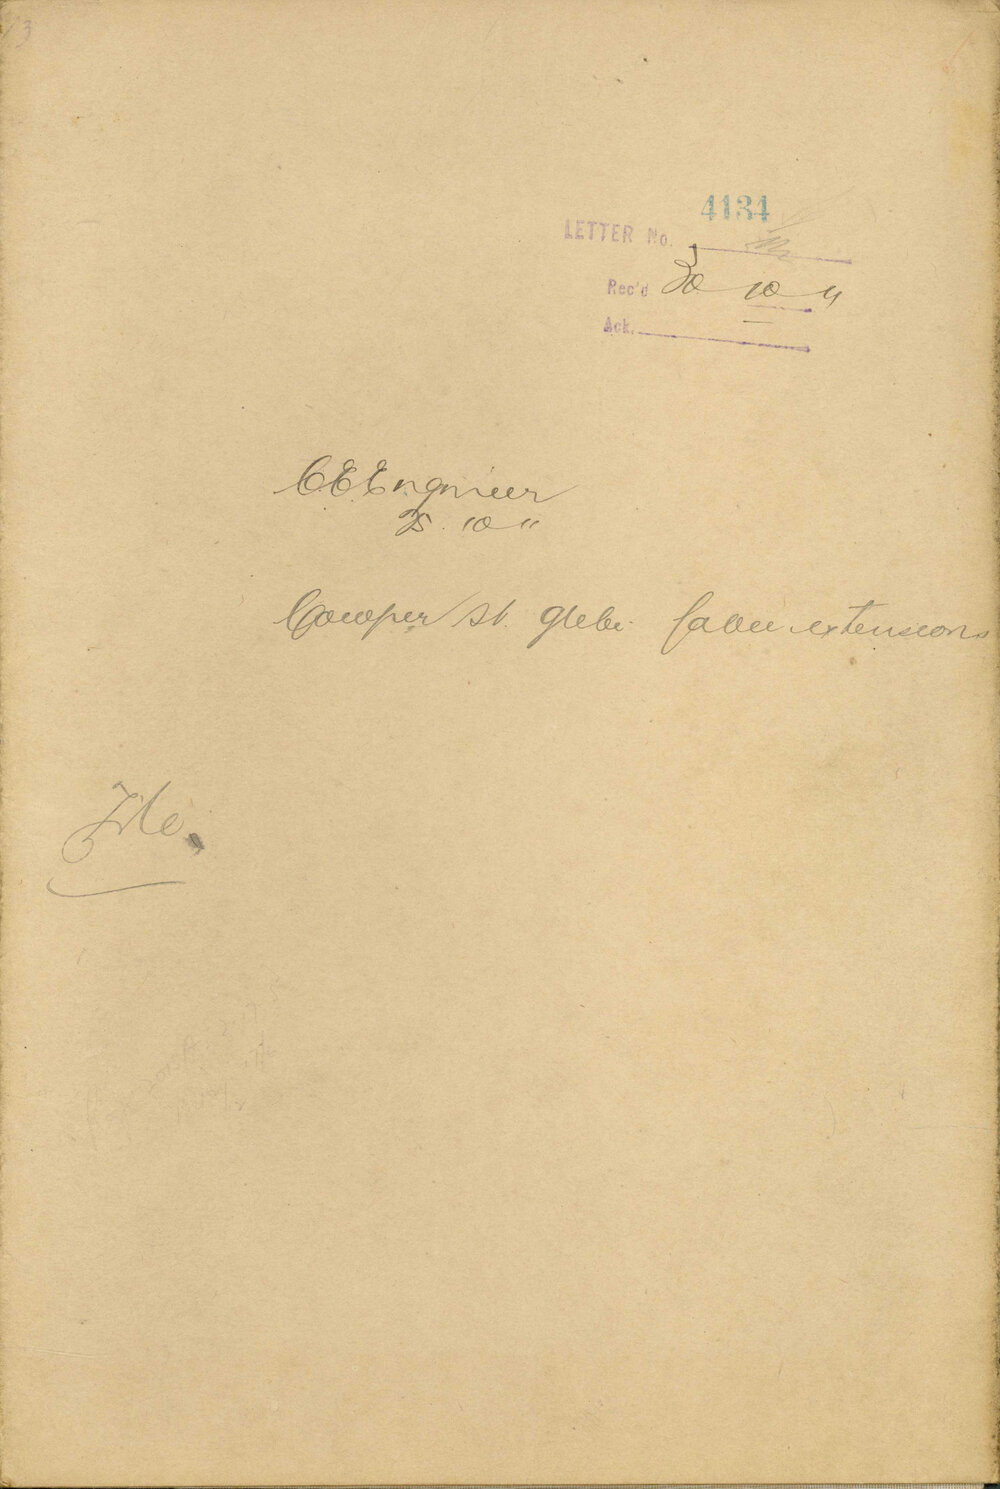 3
4134
LETTER No.
Rec'd 30 10 11
Ack.
C.E. Engineer
25. 10 11
Cowper St. Glebe. Cable extensions
File.